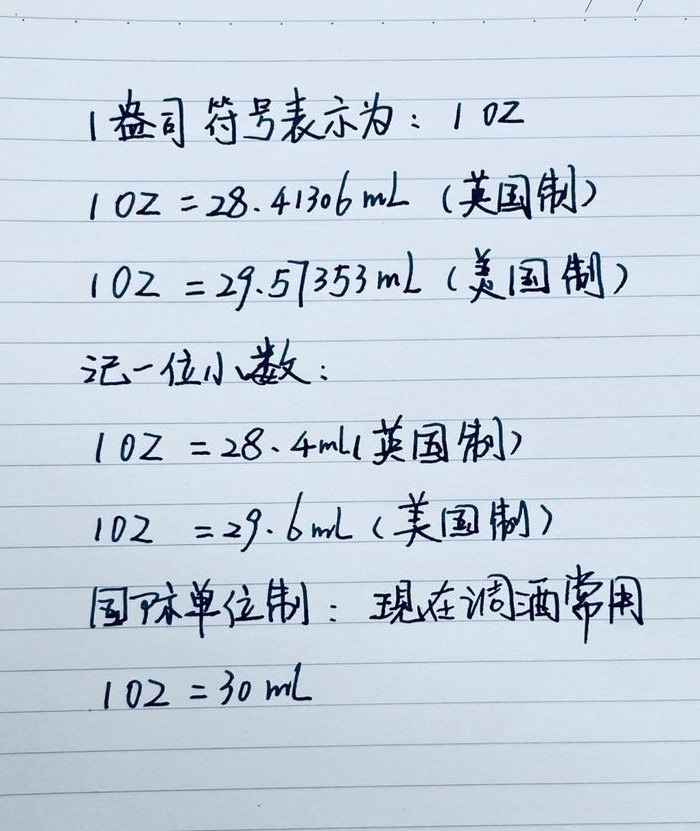 1盎司 符号表示为：1 OZ
1 OZ = 28.41306 mL（英国制）
1 OZ = 29.57353 mL（美国制）
记一位小数：
1 OZ = 28.4 mL（英国制）
1 OZ = 29.6 mL（美国制）
国际单位制：现在调酒常用
1 OZ = 30 mL